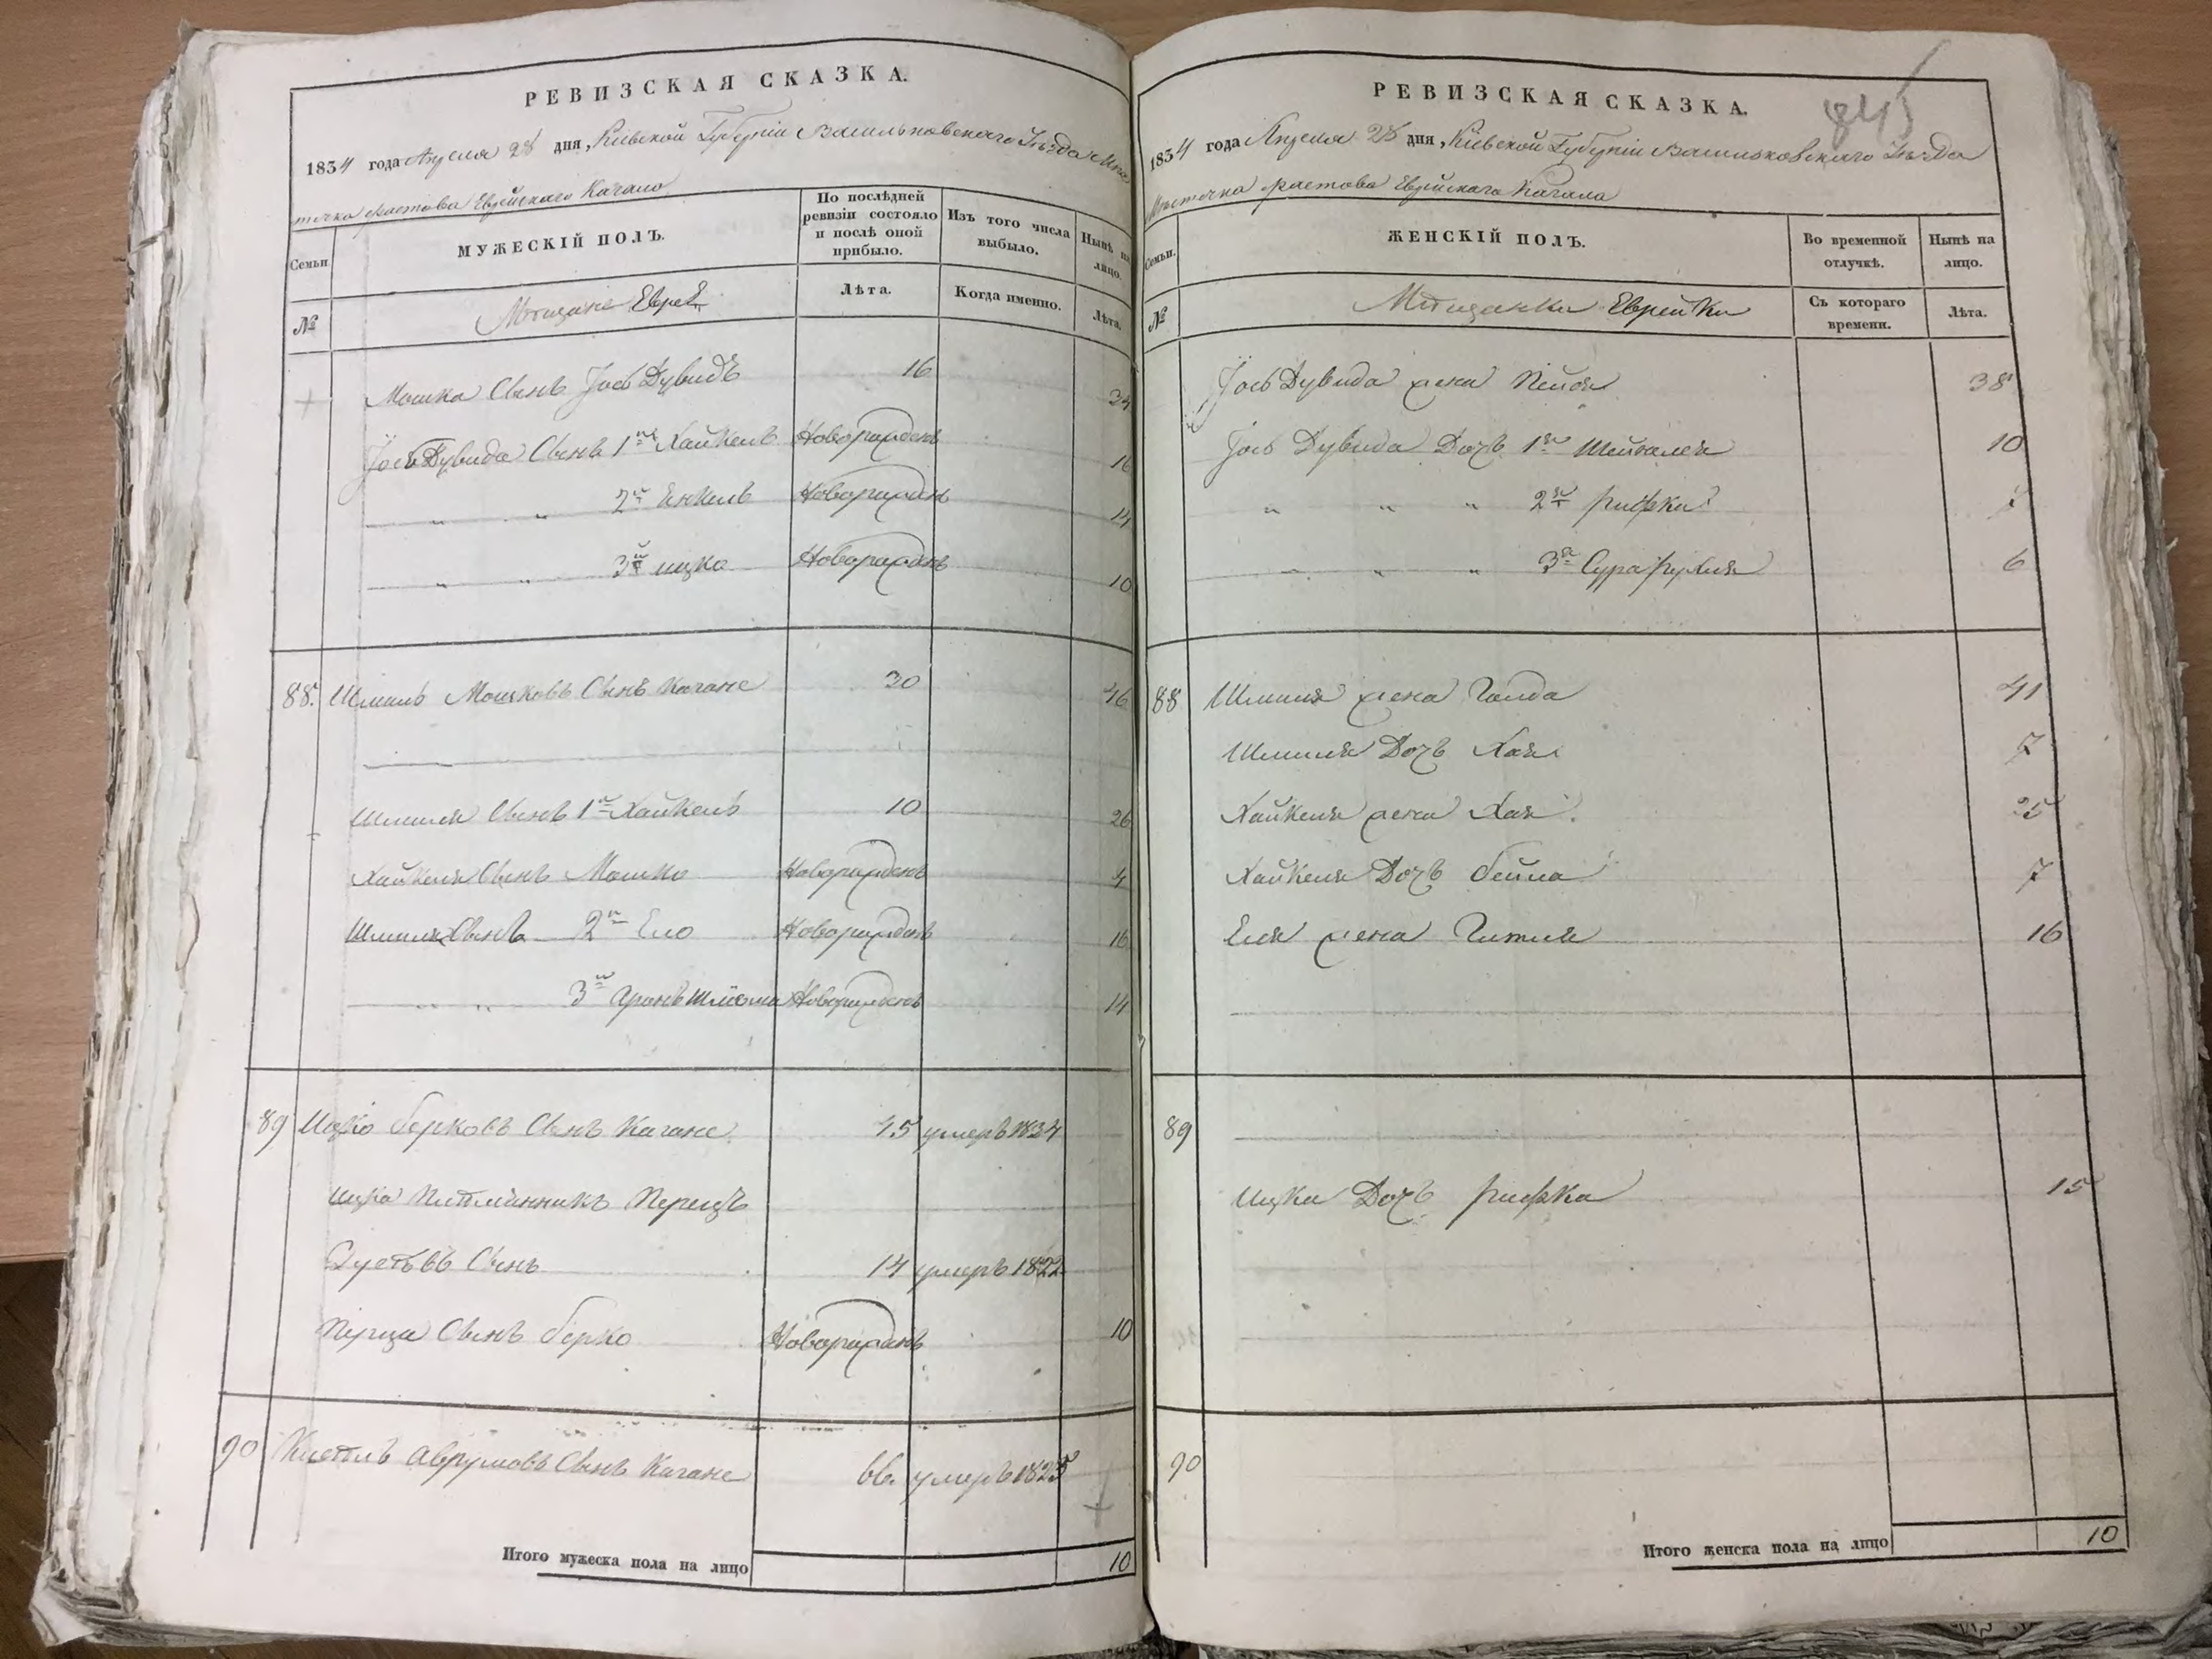 РЕВИЗСКАЯ СКАЗКА.
1834 года Апреля 28 дня, Кіевской Губерніи Васильковскаго Уѣзда Мѣс
точка Фастова Еврейскаго Кагала
Семьи
МУЖЕСКІЙ ПОЛЪ.
По послѣдней ревизіи состояло и послѣ оной прибыло.
Изъ того числа выбыло.
Нынѣ на лицо.
№
Мѣщане Евреи
Лѣта.
Когда именно.
Лѣта.
Мошка Сынъ Іось Дувидъ 16 34
Іось Дувида Сынъ 1й Хайкель Новорожденъ 16
" " 2й Енкель Новорожденъ 14
" " 3й ицко Новорожденъ 10
88. Шмиль Мошковъ Сынъ Кагане 30 46
Шмиля Сынъ 1й Хайкель 10 26
Хайкеля Сынъ Мошко Новорожденъ 4
Шмиля Сынъ 2й Ело Новорожденъ 16
" " 3й Аронъ Шлиома Новорожденъ 14
89 Ицко берковъ Сынъ Кагане 45 умеръ 1834
ицка Питминникъ Перецъ
Сынъ 14 умеръ 1822
Перца Сынъ берко Новорожденъ 10
90 Аврумовъ Сынъ Кагане 66. умеръ 1825
Итого мужеска пола на лицо 10
845
РЕВИЗСКАЯ СКАЗКА.
1834 года Апреля 28 дня, Кіевской Губерніи Васильковскаго Уѣзда
Мѣсточка Фастова Еврейскаго Кагала
Семьи.
ЖЕНСКІЙ ПОЛЪ.
Во временной отлучкѣ.
Нынѣ на лицо.
№
Мѣщанки Еврейки
Съ котораго времени.
Лѣта.
Іось Дувида жена Пейся 38
Іось Дувида Дочь 1я 10
" " " 2я рифка 7
" " " 3я Сура рухля 6
88 Шмиля жена Голда 41
Шмиля Дочь Хая 7
Хайкеля жена Хая. 25
Хайкеля Дочь бейла 7
Еля жена Гитля 16
89
ицка Дочь рифка 15
90
Итого женска пола на лицо 10